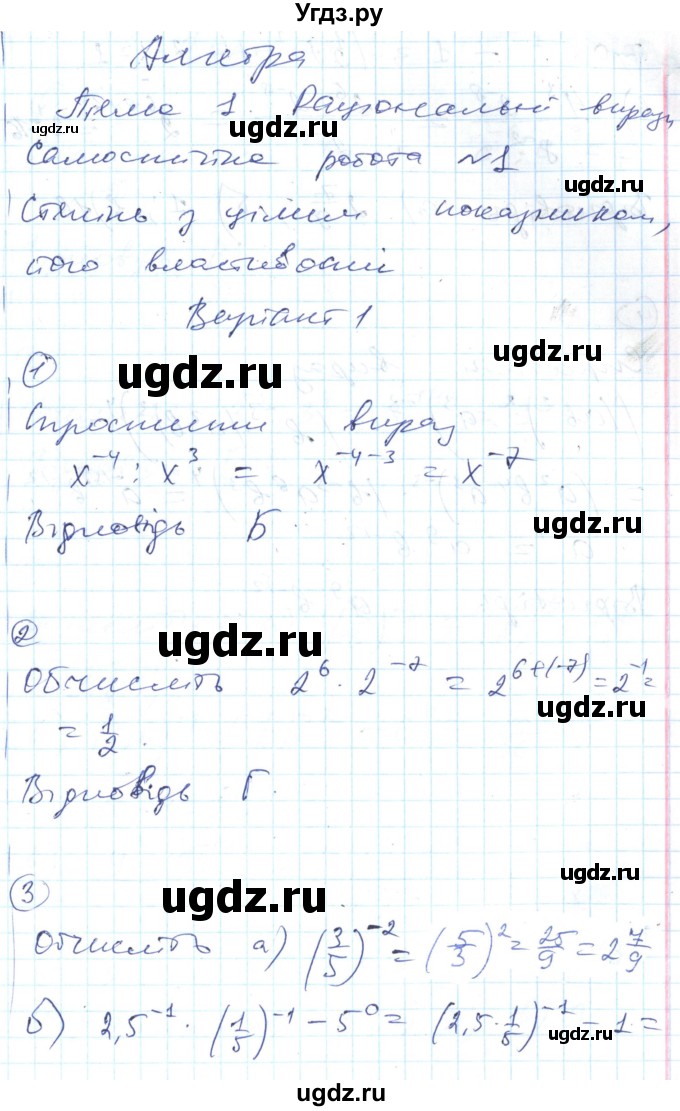 Угдз.ру
Алгебра
Тема 1. Раціональні вирази
ugdz.ru
ugdz.ru
ugdz.ru
Самостійна робота №1
ugdz.ru
Степінь з цілим показником,
його властивості
Варіант 1
ugdz.ru
①
ugdz.ru
Спростити вираз
x⁻⁴ : x³ = x⁻⁴⁻³ = x⁻⁷
Відповідь Б
ugdz.ru
②
ugdz.ru
Обчисліть 2⁶ · 2⁻⁷ = 2⁶⁺⁽⁻⁷⁾ = 2⁻¹ =
ugdz.ru
= 1/2.
Відповідь Г.
③
ugdz.ru
ugdz.ru
Обчисліть а) (3/5)⁻² = (5/3)² = 25/9 = 2 7/9
б) 2,5⁻¹ · (1/5)⁻¹ − 5⁰ = (2,5 · 1/5)⁻¹ − 1 =
ugdz.ru
ugdz.ru